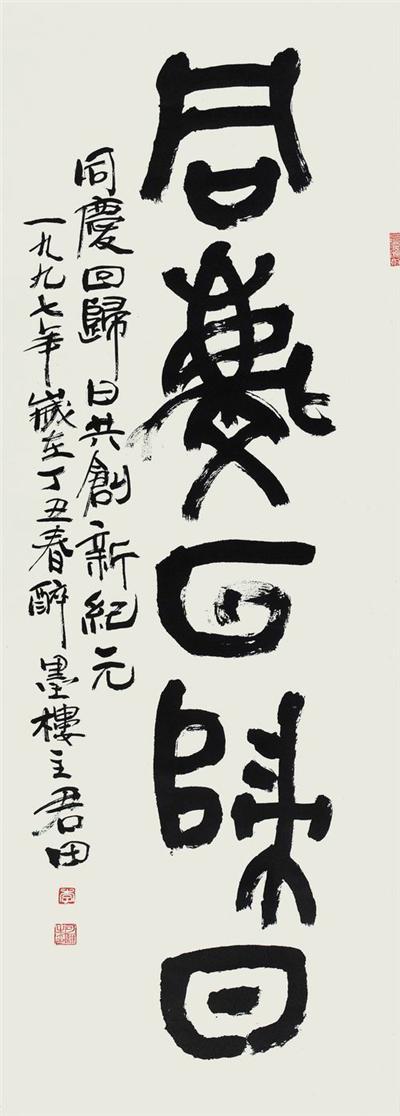 同慶回歸日
同慶回歸日共創新紀元
一九九七年歲在丁丑春醉墨樓主君田